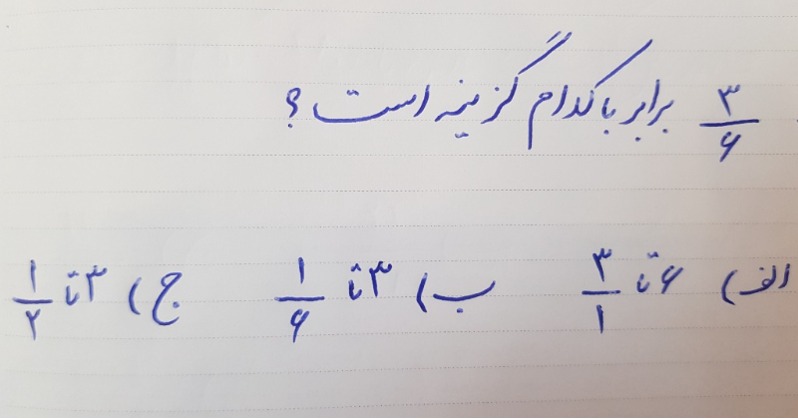 ۳/۶ برابر با کدام گزینه است؟
الف) ۶ تا ۳/۱ ب) ۳ تا ۱/۶ ج) ۳ تا ۱/۲